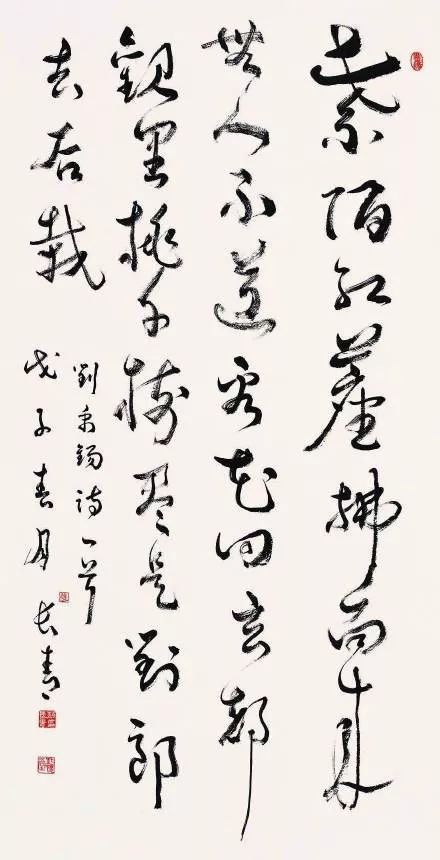 紫陌紅塵拂面來
無人不道看花回玄都
觀里桃千樹盡是劉郎
去后栽
劉禹錫詩一首
戊子春月 長青